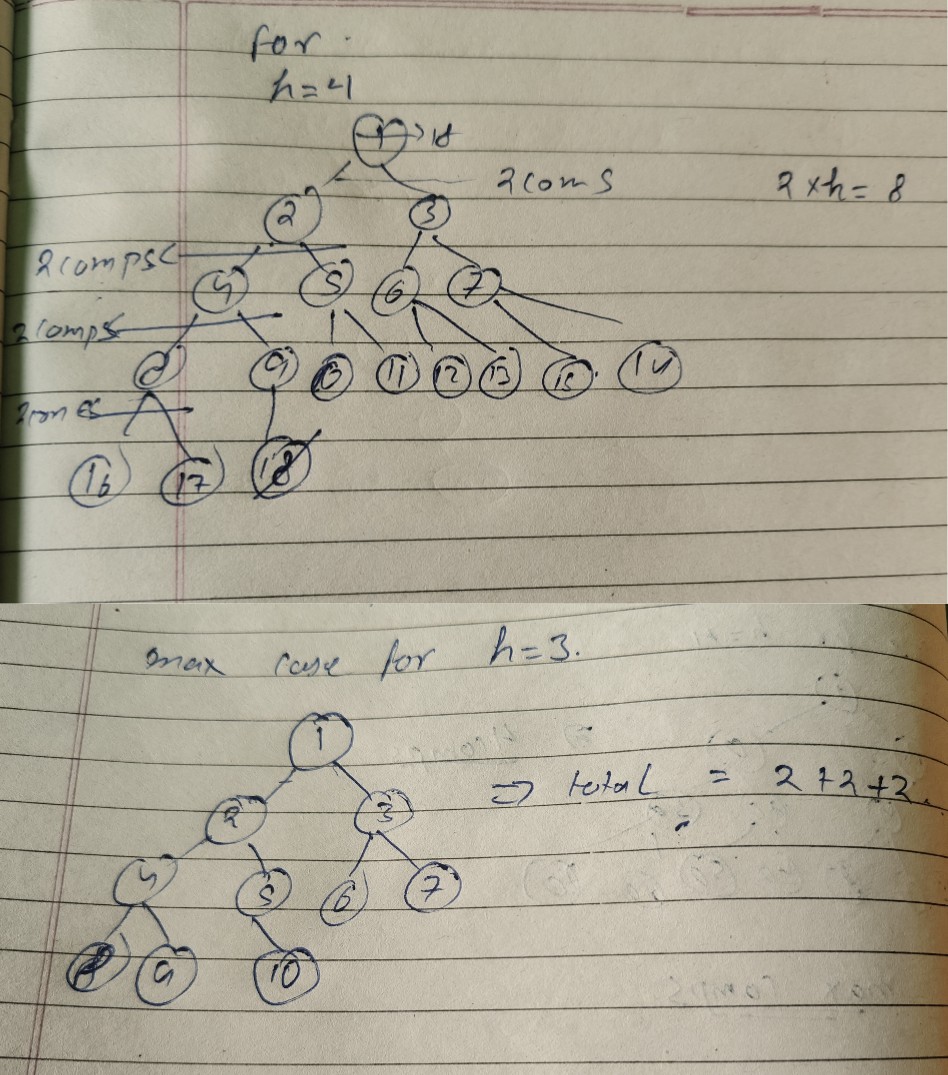 for
h=4
1 →18
2 coms 2×h= 8
2 3
2 comps
4 5 6 7
2 comps
8 9 10 11 12 13 15 14
16 17 18
max case for h=3.
1
⇒ total = 2+2+2.
2 3
4 5 6 7
8 9 10